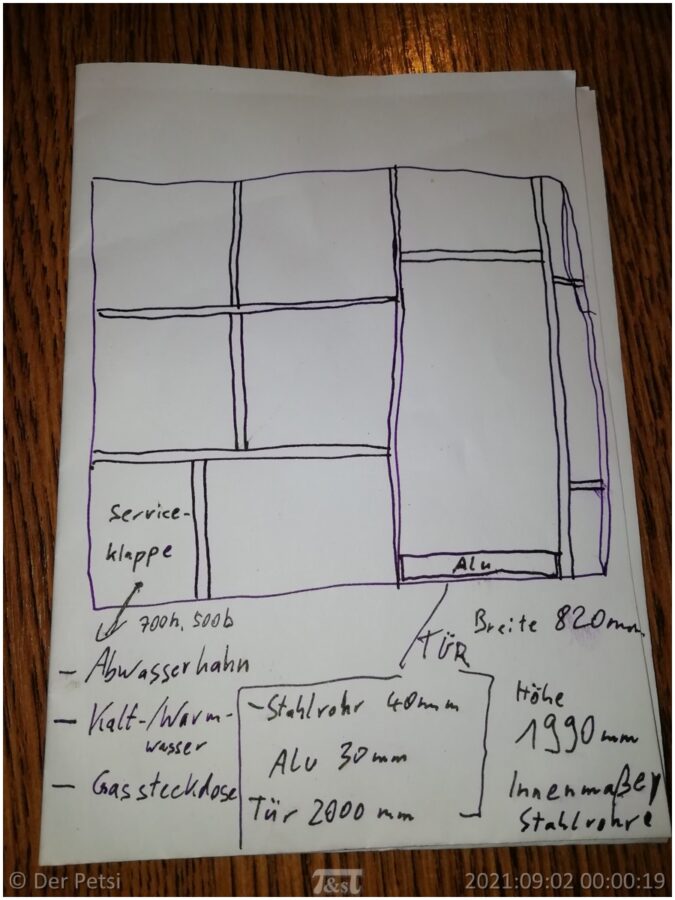 Service-
klappe
Alu
700h, 500b
Breite 820mm
TÜR
- Abwasserhahn
- Kalt-/Warm-
wasser
- Gassteckdose
- Stahlrohr 40mm
Alu 30mm
Tür 2000 mm
Höhe
1990mm
Innenmaße
Stahlrohre
© Der Petsi
T&sT
2021:09:02 00:00:19